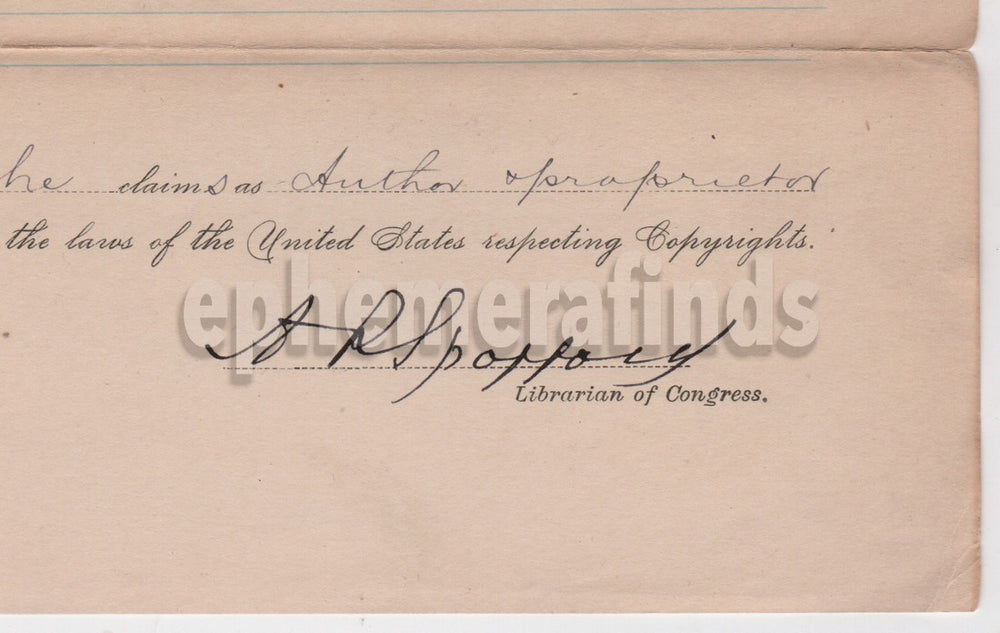 he claims as Author & proprietor
the laws of the United States respecting Copyrights.
ephemerafinds
A R Spofford
Librarian of Congress.